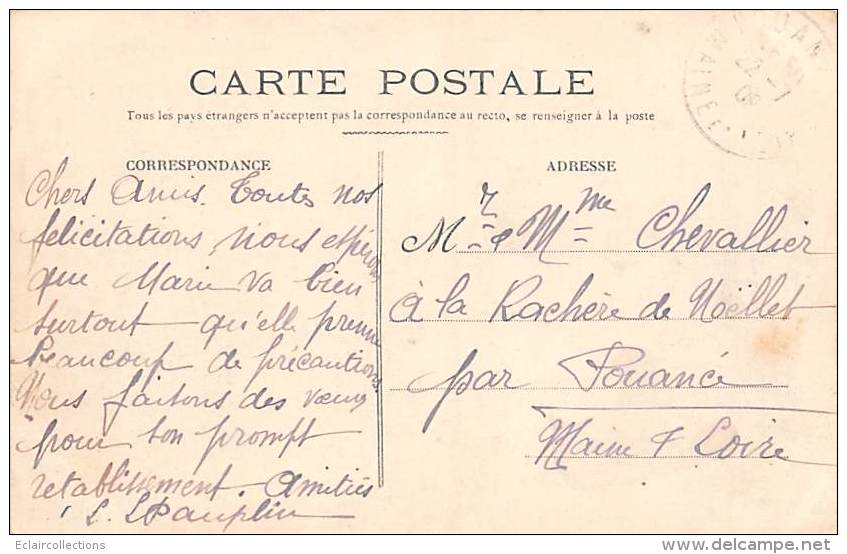 CARTE POSTALE
Tous les pays étrangers n'acceptent pas la correspondance au recto, se renseigner à la poste
CORRESPONDANCE
Chers Amis. Toutes nos
felicitations, nous espérons
que Marie va bien
surtout qu'elle prenne
beaucoup de précautions
Nous faisons des vœux
pour son prompt
retablissement. Amitiés
L. Dauplin
ADRESSE
Mr & Mme Chevallier
à la Rachère de Noëllet
par Pouancé
Maine & Loire
22 -1
MAINE
Eclaircollections
www.delcampe.net